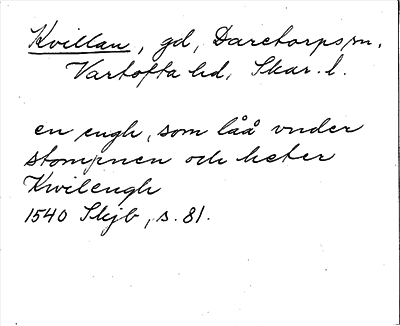 Kvillan, gd, Daretorps sn.
Vartofta hd, Skar. l.
en engh, som låå vnder
stompnen och heter
Kwilengh
1540 Skjb, s. 81.